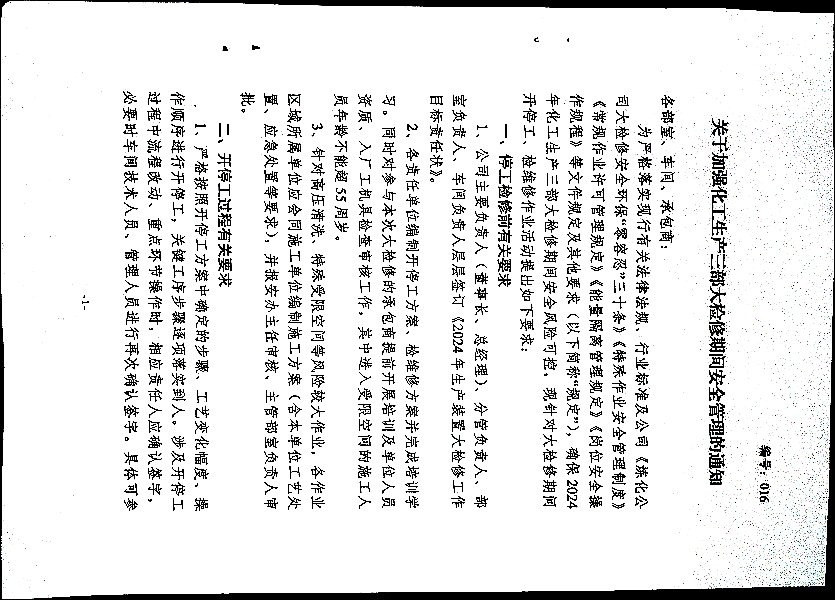 编号：016
关于加强化工生产三部大检修期间安全管理的通知
各部室、车间、承包商：
为严格落实现行有关法律法规、行业标准及公司《炼化公
司大检修安全环保“零容忍”三十条》《特殊作业安全管理制度》
《常规作业许可管理规定》《能量隔离管理规定》《岗位安全操
作规程》等文件规定及其他要求（以下简称“规定”），确保 2024
年化工生产三部大检修期间安全风险可控，现针对大检修期间
开停工、检维修作业活动提出如下要求：
一、停工检修前有关要求
1、公司主要负责人（董事长、总经理）、分管负责人、部
室负责人、车间负责人层层签订《2024 年生产装置大检修工作
目标责任状》。
2、各责任单位编制开停工方案、检维修方案并完成培训学
习。同时对参与本次大检修的承包商提前开展培训及单位人员
资质、入厂工机具检查审核工作，其中进入受限空间的施工人
员年龄不能超 55 周岁。
3、针对高压清洗、特殊受限空间等风险较大作业，各作业
区域所属单位应会同施工单位编制施工方案（含本单位工艺处
置、应急处置等要求），并报安办主任审核、主管部室负责人审
批。
二、开停工过程有关要求
1、严格按照开停工方案中确定的步骤、工艺变化幅度、操
作顺序进行开停工，关键工序步骤逐项落实到人。涉及开停工
过程中流程改动、重点环节操作时，相应责任人应确认签字，
必要时车间技术人员、管理人员进行再次确认签字。具体可参
-1-